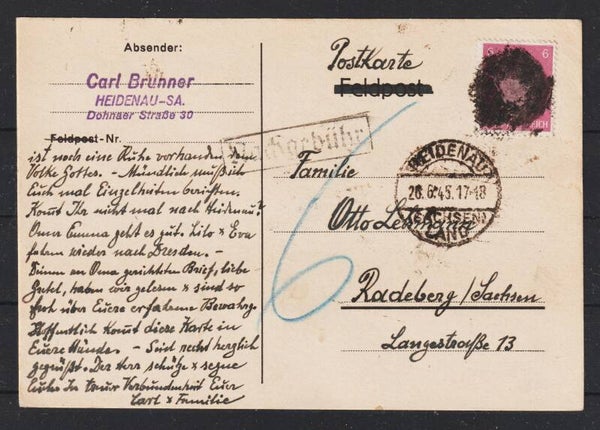 Absender:
Carl Brunner
HEIDENAU-SA.
Dohnaer Straße 30
Feldpost-Nr.
ist noch eine Ruhe vorhanden dem
Volke Gottes. - Mündlich müßt Ihr
Euch mal Einzelheiten berichten.
Kommt Ihr nicht mal nach Heidenau?
Oma Emma geht es gut. Lilo & Eva
fahren wieder nach Dresden. -
an Oma gerichteten Brief, liebe
haben wir gelesen & sind so
froh über Euere erfahrene Bewahrg.
Hoffentlich kommt diese Karte in
Euere Hände. - Seid recht herzlich
gegrüßt. Der Herr schütze & segne
Euch. In treuer Verbundenheit Euer
Carl & Familie
Postkarte
Feldpost
6
REICH
Nachgebühr
HEIDENAU
26.6.45.17-18
(SACHSEN)
LAND
6
Familie
Otto
Radeberg/Sachsen
Langestraße 13